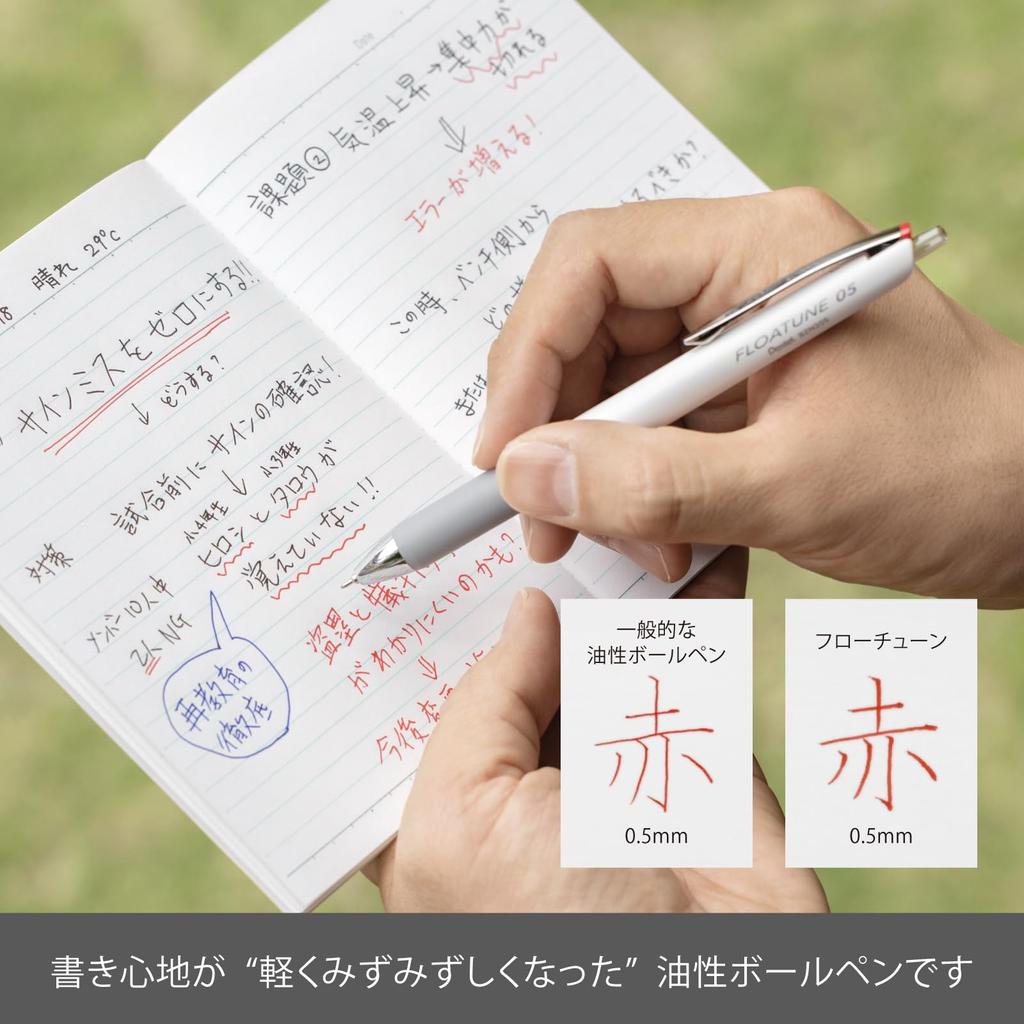 18 晴れ 29℃
サインミスをゼロにする!!
↓どうする?
試合前にサインの確認!
対策
↓
小4弾生
小3弾生
ヒロシとタロウが
覚えていない!!
メンバー10人中
2人NG
再教育の
徹底
盗塁と犠
がわかりにくいのかも?
↓
今後
Date
課題② 気温上昇→集中力が
切れる
エラーが増える!
この時、ベンチ側から
どの
べきか?
または
FLOATUNE 05
Pentel
一般的な
油性ボールペン
赤
0.5mm
フローチューン
赤
0.5mm
書き心地が “軽くみずみずしくなった” 油性ボールペンです